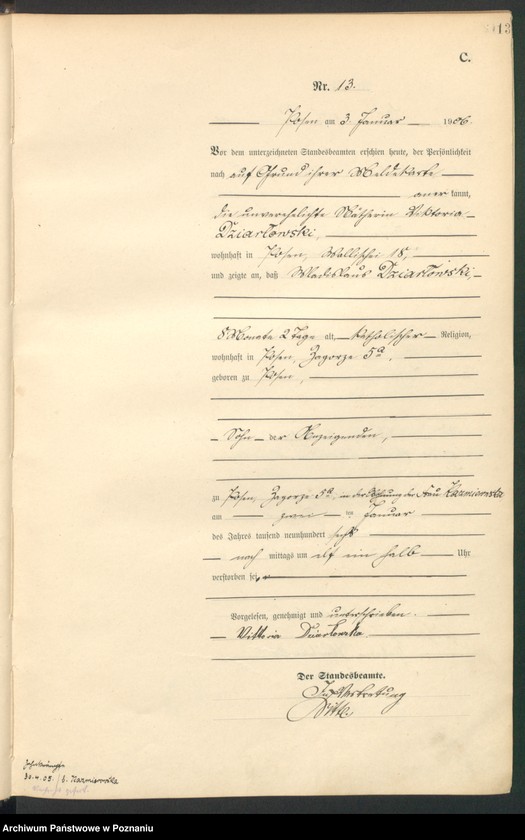 13
C.
Nr. 13.
Posen am 3. Januar 1906
Vor dem unterzeichneten Standesbeamten erschien heute, der Persönlichkeit
nach auf Grund ihrer Meldekarte
aner kannt,
die unverehelichte Näherin Viktoria
Dziarlowski,
wohnhaft in Posen, Wallischei 18,
und zeigte an, daß Wladislaus Dziarlowski,
8 Monate 2 Tage alt, katholischer Religion,
wohnhaft in Posen, Zagorze 5a,
geboren zu Posen,
Sohn der Anzeigenden,
zu Posen, Zagorze 5a, in der Wohnung der Frau Kazmierowska
am zwei ten Januar
des Jahres tausend neunhundert sechs
nach mittags um elf ein halb Uhr
verstorben sei.
Vorgelesen, genehmigt und unterschrieben.
Viktoria Dziarłowska
Der Standesbeamte.
In Vertretung
b. Kazmierowska
Archiwum Państwowe w Poznaniu